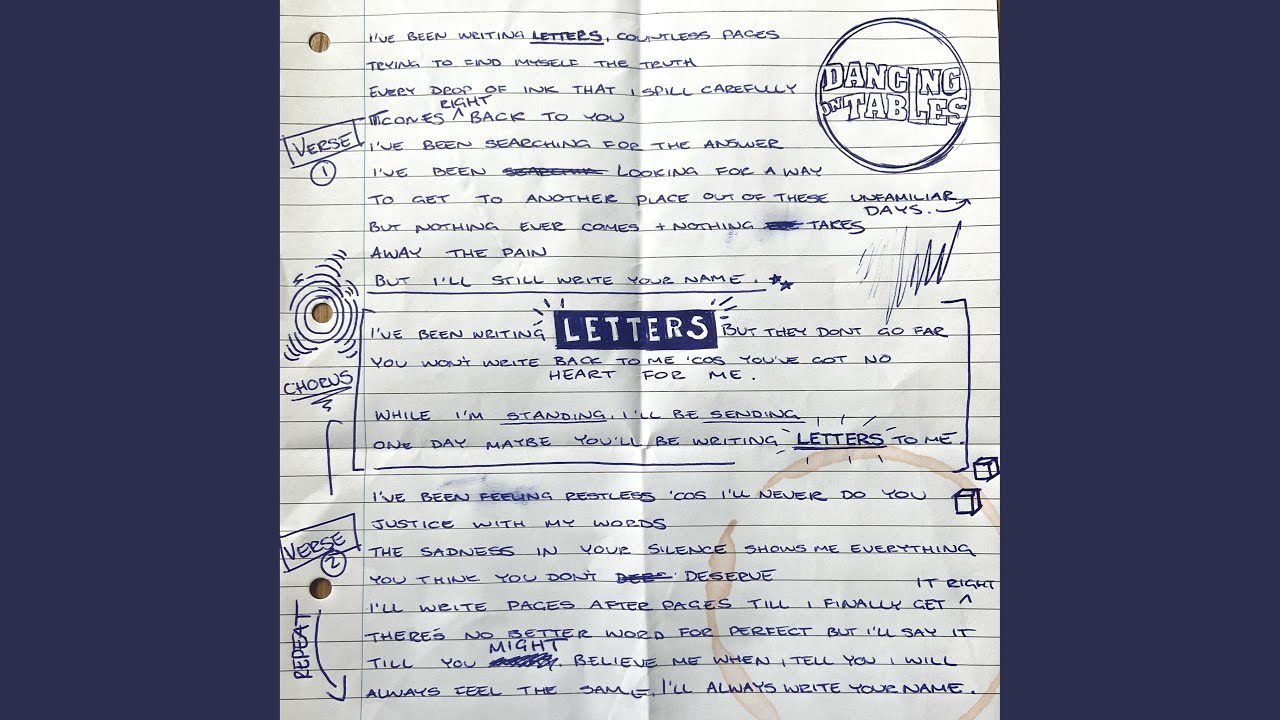 I'VE BEEN WRITING LETTERS, COUNTLESS PAGES
TRYING TO FIND MYSELF THE TRUTH
EVERY DROP OF INK THAT I SPILL CAREFULLY
COMES RIGHT BACK TO YOU
I'VE BEEN SEARCHING FOR THE ANSWER
I'VE BEEN LOOKING FOR A WAY
TO GET TO ANOTHER PLACE OUT OF THESE UNFAMILIAR
DAYS.
BUT NOTHING EVER COMES + NOTHING TAKES
AWAY THE PAIN
BUT I'LL STILL WRITE YOUR NAME.
VERSE
1
DANCING
ON TABLES
I'VE BEEN WRITING LETTERS BUT THEY DONT GO FAR
YOU WON'T WRITE BACK TO ME 'COS YOU'VE GOT NO
HEART FOR ME.
WHILE I'M STANDING, I'LL BE SENDING
ONE DAY MAYBE YOU'LL BE WRITING LETTERS TO ME.
CHORUS
I'VE BEEN FEELING RESTLESS 'COS I'LL NEVER DO YOU
JUSTICE WITH MY WORDS
THE SADNESS IN YOUR SILENCE SHOWS ME EVERYTHING
YOU THINK YOU DON'T DESERVE
I'LL WRITE PAGES AFTER PAGES TILL I FINALLY GET IT RIGHT
THERE'S NO BETTER WORD FOR PERFECT BUT I'LL SAY IT
TILL YOU MIGHT BELIEVE ME WHEN I TELL YOU I WILL
ALWAYS FEEL THE SAME. I'LL ALWAYS WRITE YOUR NAME.
VERSE
2
REPEAT